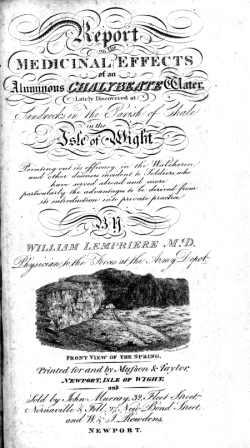 Report
on the
MEDICINAL EFFECTS
of an
Aluminous CHALYBEATE Water
Lately Discovered at
Sandrocks in the Parish of Whale
in the
Isle of Wight
Pointing out its efficacy in the Walcheren
and other diseases incident to Soldiers who
have served abroad and more
particularly the advantage to be derived from
its introduction into private practice
By
WILLIAM LEMPRIERE M.D.
Physician to the Forces at the Army Depot
FRONT VIEW OF THE SPRING.
Printed for and by Musson & Taylor,
NEWPORT, ISLE OF WIGHT,
and
Sold by John Murray, 32, Fleet Street
Nornaville & Fell, 29, New Bond Street
and W. & J. Rowdens,
NEWPORT.